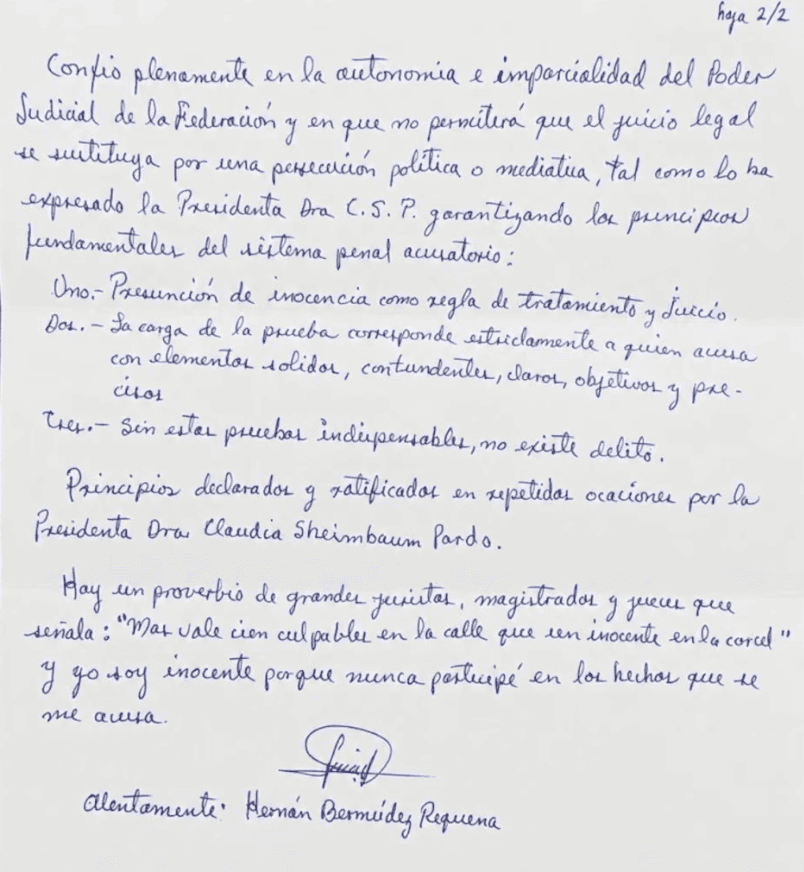 hoja 2/2
Confio plenamente en la autonomia e imparcialidad del Poder
Judicial de la Federación y en que no permitirá que el juicio legal
se sustituya por una persecución política o mediatica, tal como lo ha
expresado la Presidenta Dra C. S. P. garantizando los principios
fundamentales del sistema penal acusatorio:
Uno.- Presunción de inocencia como regla de tratamiento y Juicio.
Dos.- La carga de la prueba corresponde estrictamente a quien acusa
con elementos solidos, contundentes, claros, objetivos y pre-
cisos
Tres.- Sin estas pruebas indispensables, no existe delito.
Principios declarados y ratificados en repetidas ocaciones por la
Presidenta Dra. Claudia Sheimbaum Pardo.
Hay un proverbio de grandes juristas, magistrados y jueces que
señala: "Mas vale cien culpables en la calle que un inocente en la carcel"
y yo soy inocente porque nunca participé en los hechos que se
me acusa.
Atentamente: Hernán Bermúdez Requena